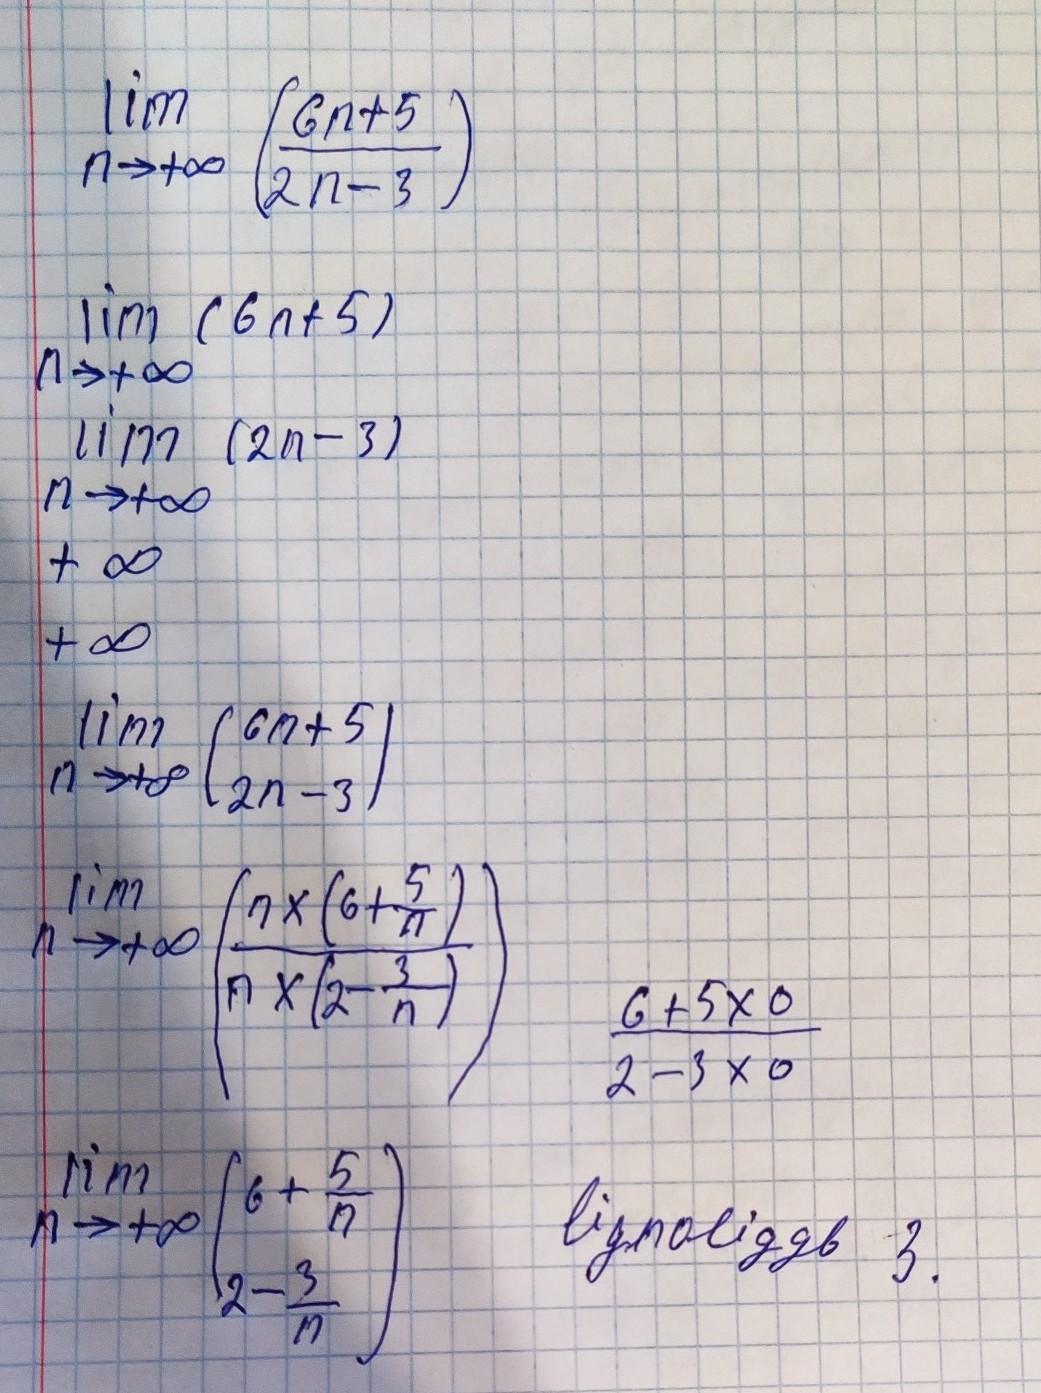 lim
n→+∞ (6n+5
2n-3)
lim (6n+5)
n→+∞
lim (2n-3)
n→+∞
+ ∞
+ ∞
lim
n→+∞ (6n+5
2n-3)
lim
n→+∞ (n×(6+5/n)
n×(2-3/n))
6+5×0
2-3×0
lim
n→+∞ (6+5/n
2-3/n)
3.